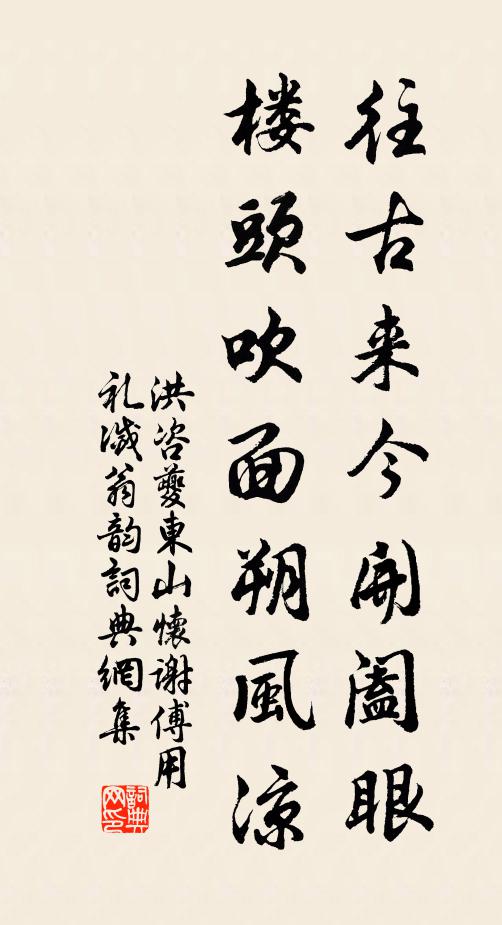 往古来今開阖眼
楼頭吹面朔風涼
洪咨夔東山懷謝傅用
礼減翁韵詞典網集
詞典网印